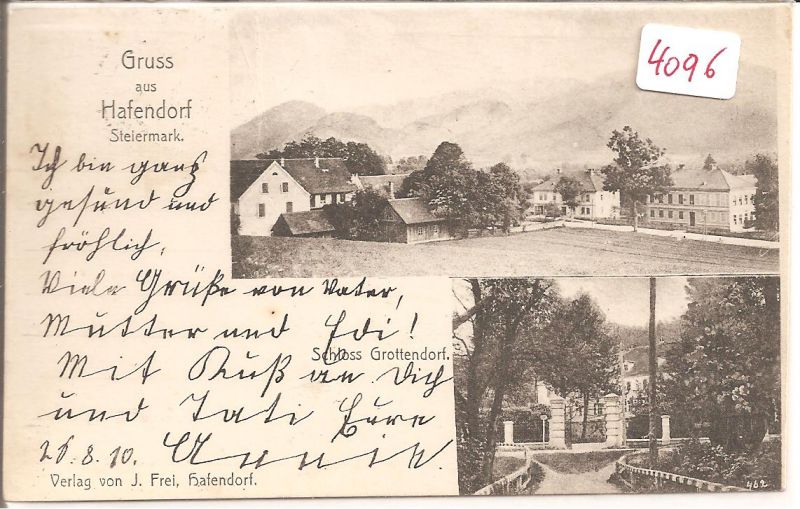 4096
Gruss
aus
Hafendorf
Steiermark.
Ich bin ganz
gesund und
fröhlich,
Viele Grüße von Vater,
Mutter und Edi!
Schloss Grottendorf.
Mit Kuß an Dich
und Tati Eure
26.8.10. Annie.
Verlag von J. Frei, Hafendorf.
462